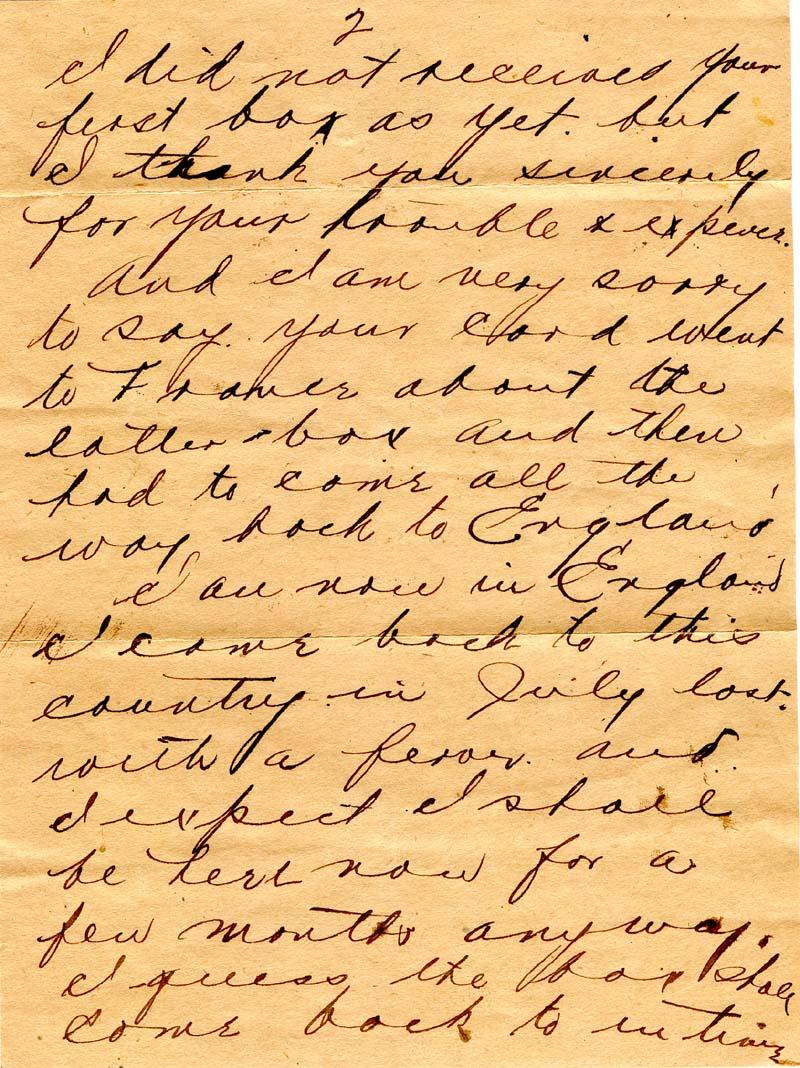 2
I did not received your
first box as yet. but
I thank you sincerily
for your trouble &
And I am very sorry
to say. your card went
to France about the
latter box and then
had to come all the
way back to England
I am now in England
I come back to this
country in July last.
with a fever. and
I expect I shall
be here now for a
few months anyway.
I guess the box shall
come back to in time